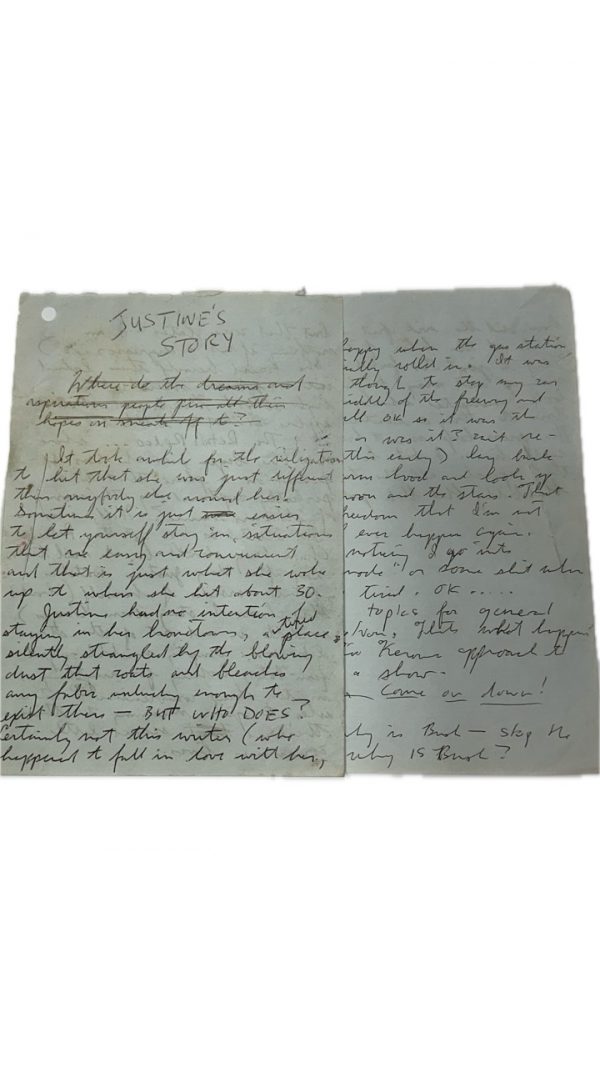 JUSTINE'S
STORY
Where do the dreams and
aspirations people pin all their
hopes on sneak off to?
It took awhile for the realization
to hit that she was just different
than anybody else around her.
Sometimes it is just easier
to let yourself stay in situations
that are easy and convenient
and that is just what she woke
up to when she hit about 30.
Justine had no intention of
staying in her hometown, a tired place
silently strangled by the blowing
dust that coats and bleaches
any fabric unlucky enough to
exist there — BUT WHO DOES?
Certainly not this writer (who
happened to fall in love with her,
happy when the gas station
rolled in. It was
though to stop my car
middle of the freeway and
all OK so it was the
or was it? can't re-
this early) lay back
warm hood and look up
moon and the stars. That
freedom that I'm not
ever happen again.
nothing I go into
mode" or some shit when
tired. OK.....
topics for general
That's what happens
approach to
a show.
come on down!
is Bush — skip the
why IS Bush?